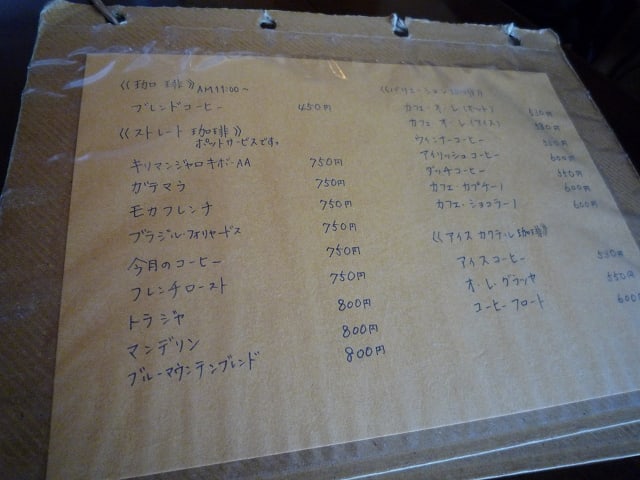 《珈琲》AM11:00～
ブレンドコーヒー 450円
《ストレート珈琲》
ポットサービスです。
キリマンジャロキボーAA 750円
ガテマラ 750円
モカフレンチ 750円
ブラジル・フォリヤードス 750円
今月のコーヒー 750円
フレンチロースト 750円
トラジャ 800円
マンデリン 800円
ブルーマウンテンブレンド 800円
《バリエーション珈琲》
カフェ・オ・レ(ホット)
カフェ・オ・レ(アイス)
ウィンナーコーヒー
アイリッシュコーヒー 600円
ダッチコーヒー
カフェ・カプチーノ 600円
カフェ・ショコラーノ 600円
《アイスカクテル珈琲》
アイスコーヒー
オ・レ・グラッセ
コーヒーフロート